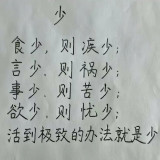 少
食少，则疾少；
言少，则祸少；
事少，则苦少；
欲少，则忧少；
活到极致的办法就是少